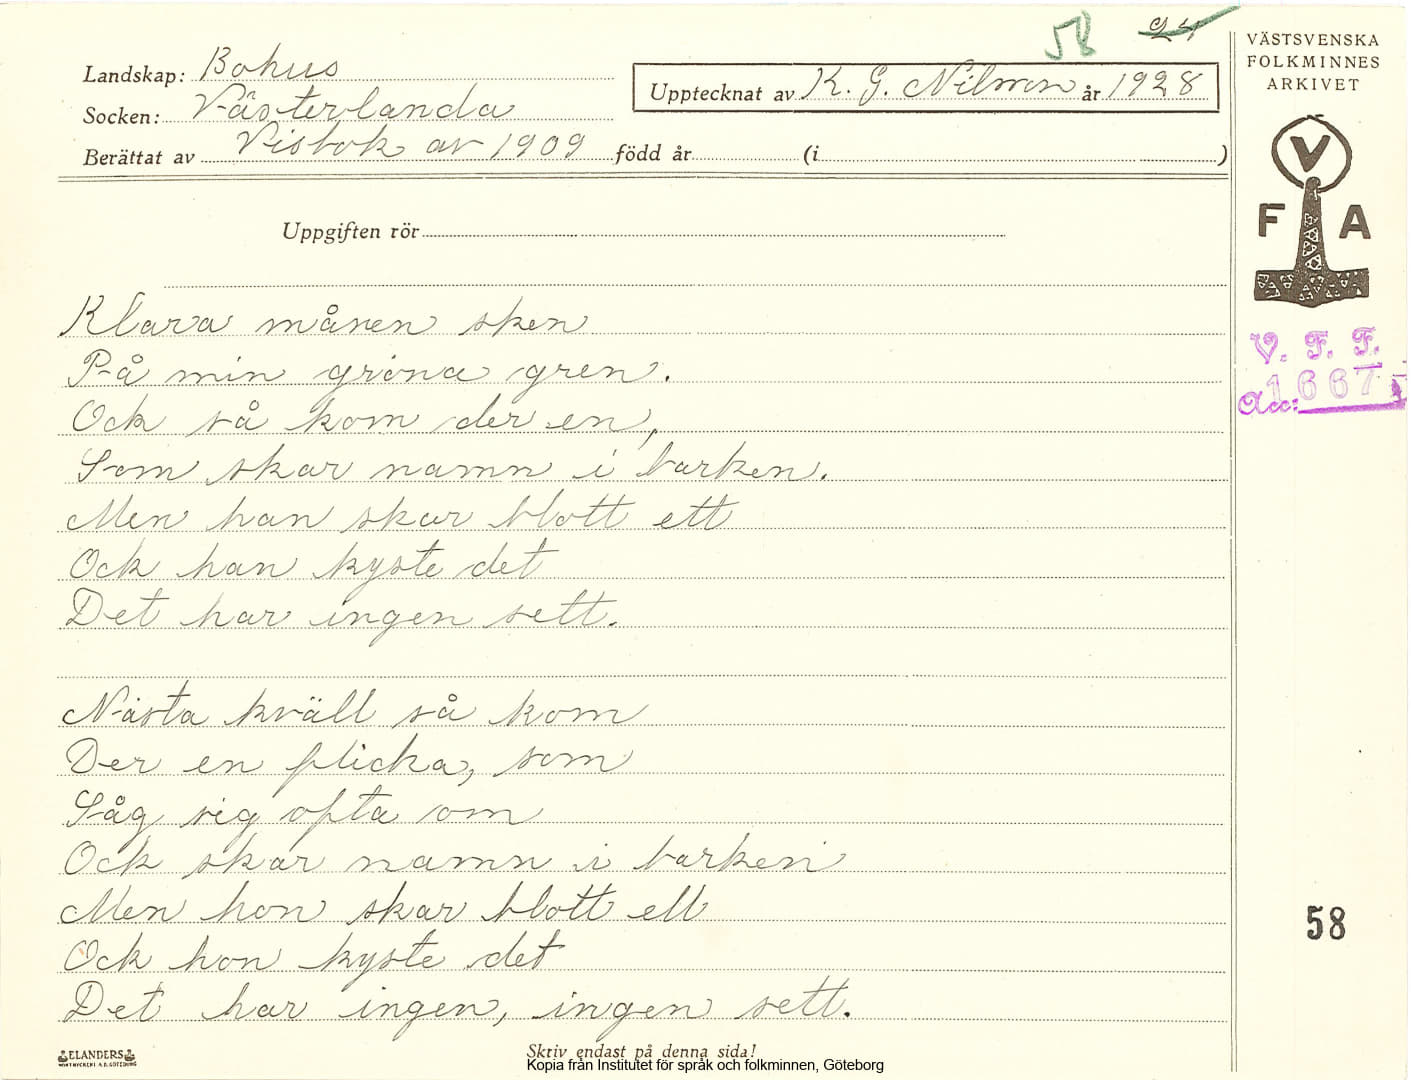 58 24
Landskap: Bohus
Socken: Västerlanda
Upptecknat av K. G. Nilsson år 1928
Berättat av Visbok av 1909 född år (i )
Uppgiften rör
VÄSTSVENSKA
FOLKMINNES
ARKIVET
V
F A
V. F. F.
Acc: 1667
Klara månen sken
På min gröna gren.
Ock så kom der en,
Som skar namn i barken.
Men han skar blott ett
Ock han kyste det
Det har ingen sett.
Nästa kväll så kom
Der en flicka, som
Såg sig ofta om
Ock skar namn i barken
Men hon skar blott ett
Ock hon kyste det
Det har ingen, ingen sett.
58
ELANDERS
Skriv endast på denna sida!
Kopia från Institutet för språk och folkminnen, Göteborg